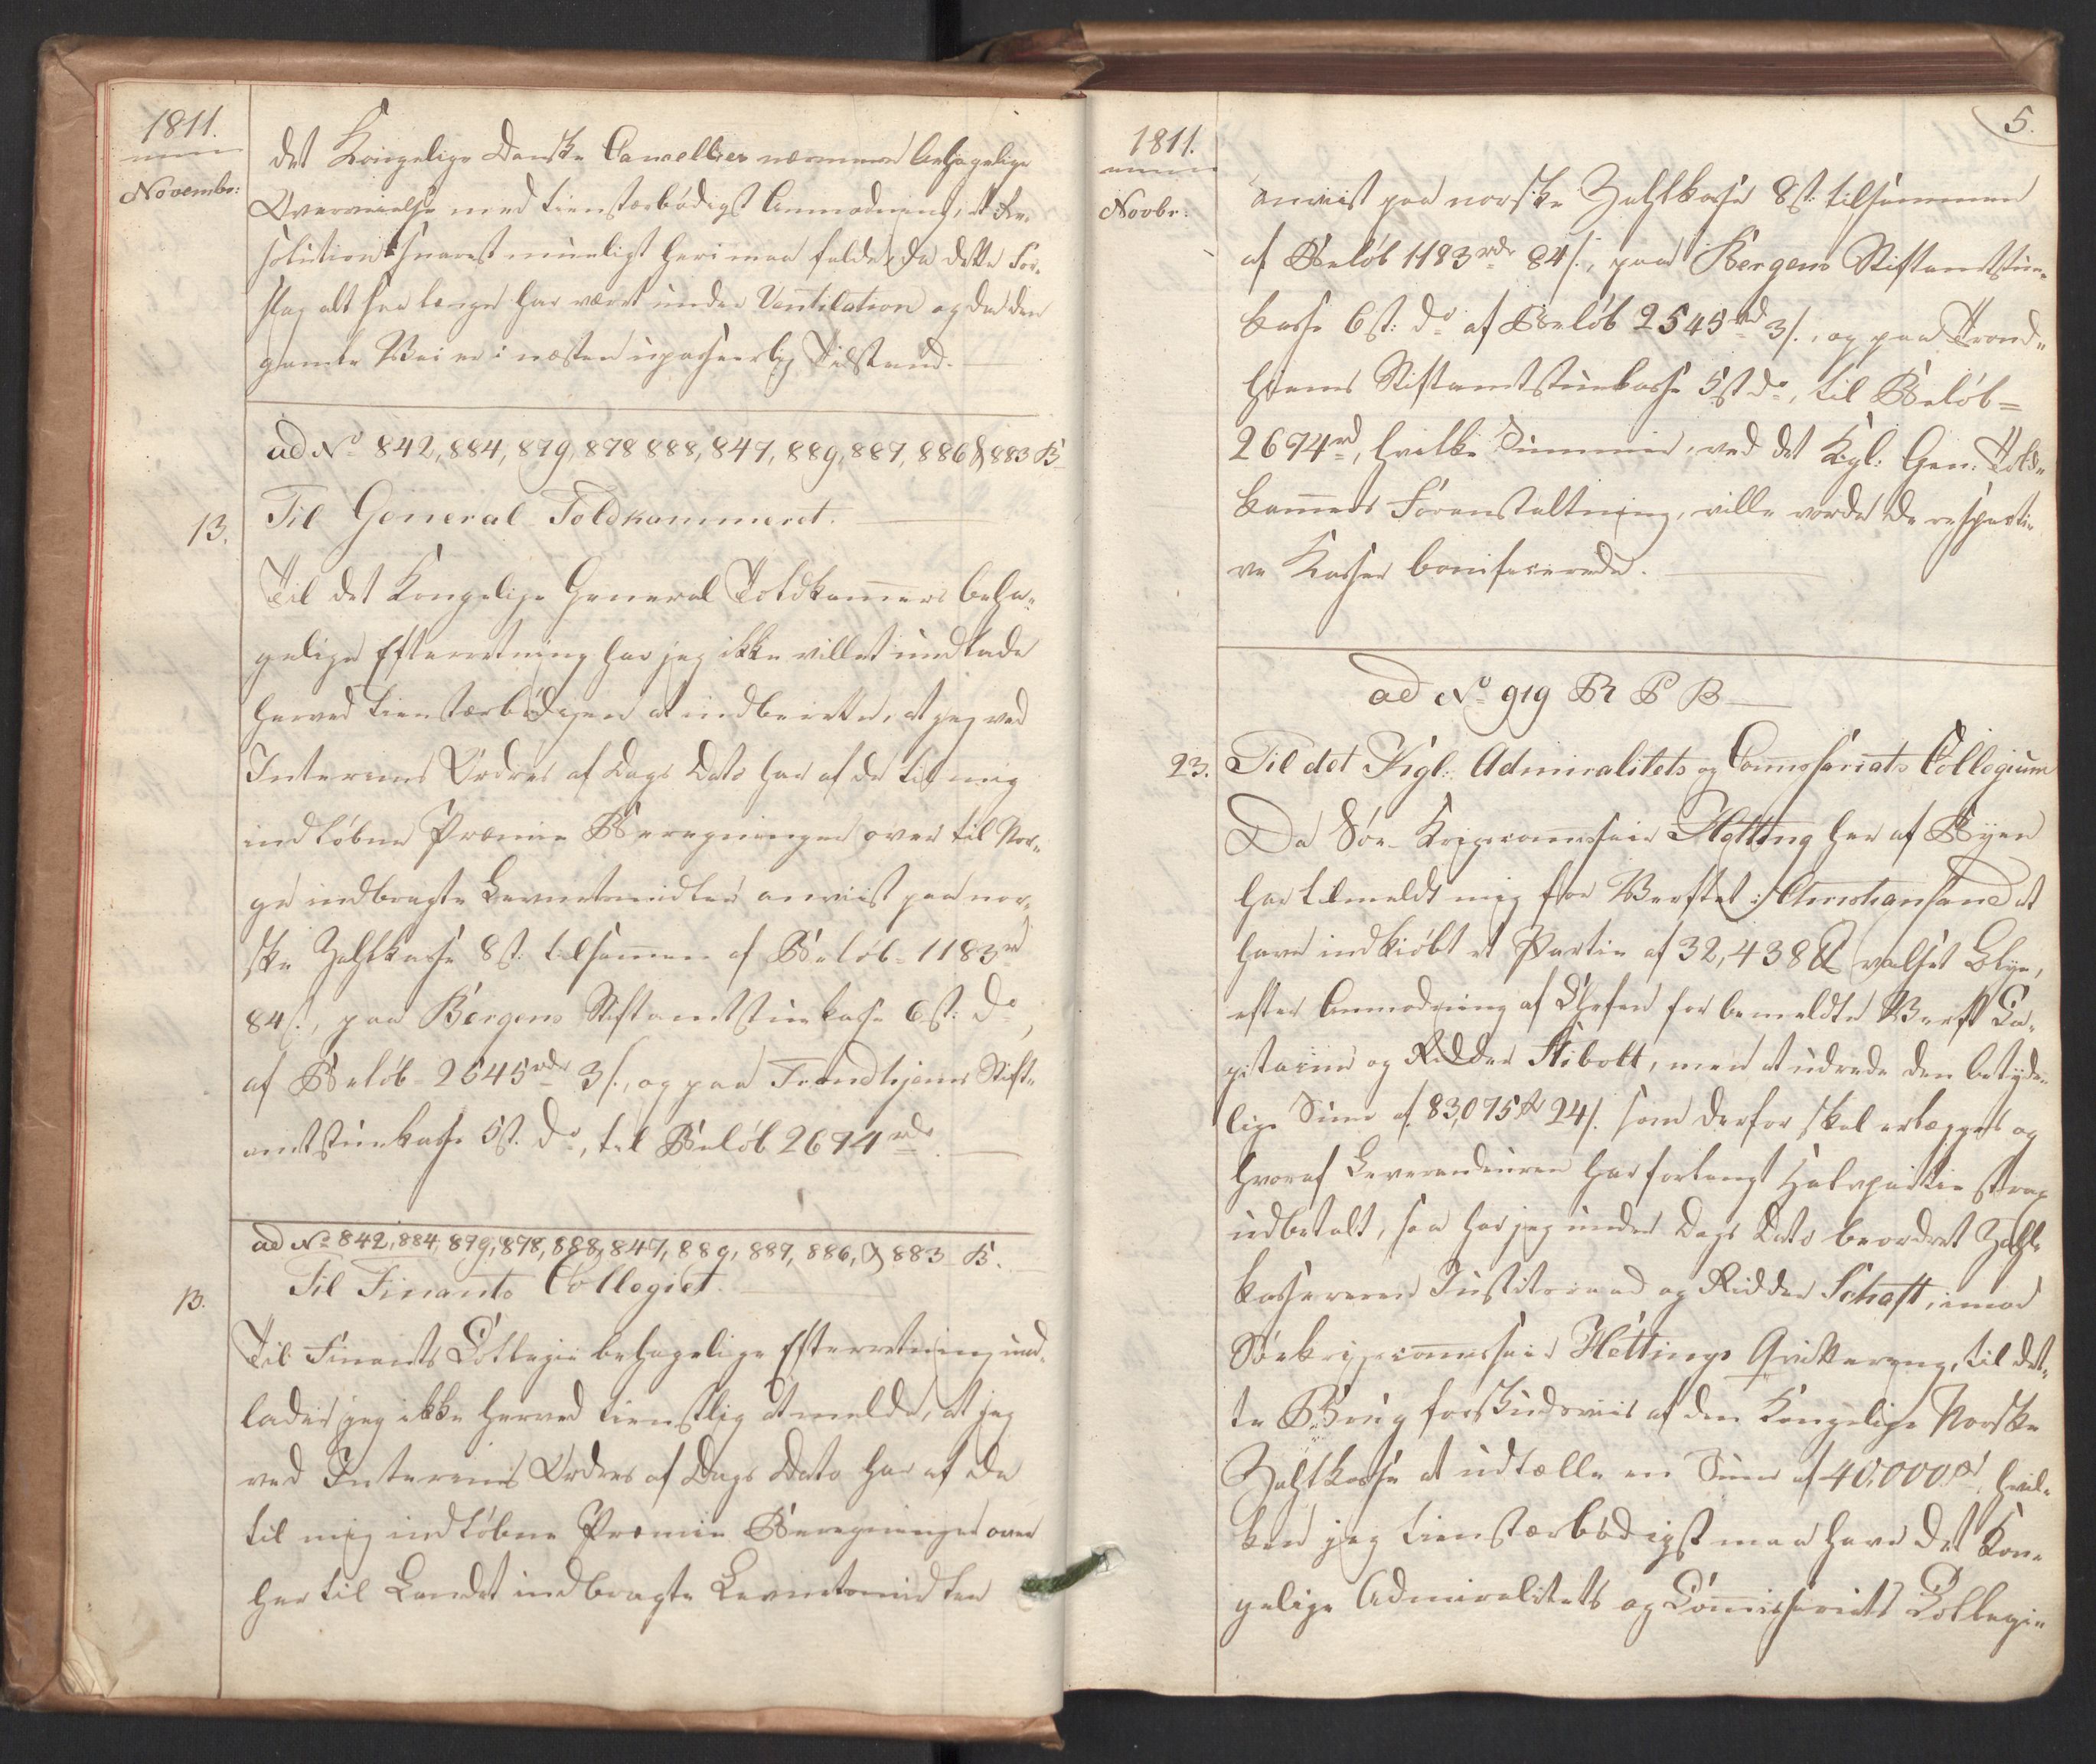 1811.
Novembr:
det Kongelige Danske Cancellies nærmere behagelige
Overveielse med tienstærbødigst Anmodning, at Re„
solution snarest mueligt heri maa falde, da dette For„
slag alt saa længe har været under Ventilation og da den
gamle Vei er i næsten upasseerlig Tilstand.
ad No 842, 884, 879, 878 888, 847, 889, 887, 886 & 883 B
13.
Til General Toldkammeret.
Til det Kongelige General Toldkamers beha„
gelige Efterretning har jeg ikke villet undlade
herved tienstærbødigst at indberette, at jeg ved
Interims Ordres af Dags Dato har af de til mig
indløbne Præmie Beregninger over til Nor„
ge indbragte Levnetsmidler anviist paa nor„
ske Zahlkasse 8 st. tilsamen af Beløb 1183 rd
84 s., paa Bergens Stiftamtstuekasse 6 st: do,
af Beløb 2545 rdr 3 s., og paa Trondhjems Stift„
amtstuekasse 5 st. do, til Beløb 2674 rdr.
ad No 842, 884, 879, 878, 888, 847, 889, 887, 886, & 883 B.
13.
Til Finants Collegiet.
Til Finants Collegii behagelige Efterretning und„
lader jeg ikke herved tienstlig at melde, at jeg
ved Interims Ordres af Dags Dato har af de
til mig indløbne Præmie Beregninger over
her til Landet indbragte Levnetsmidler
5.
1811.
Novbr.
anviist paa norske Zahlkasse 8 st: tilsammen
af Beløb 1183 rdr 84 s., paa Bergens Stiftamtstue„
kasse 6 st: do af Beløb 2545 rd 3 s., og paa Trond„
hiems Stiftamtstuekasse 5 st do, til Beløb
2674 rd, hvilke Summer, ved det Kgl. Gen. Told„
kamers Foranstaltning, ville vorde de respecti„
ve Kasser bonificerede.
ad No 919 R P B
23.
Til det Kgl: Admiralitets og Comissariats Collegium
Da Søe-Krigscomissair Hetting her af Byen
har tilmeldt mig for Verftet i Christiansand at
have indkiøbt et Partie af 32,438 ℔ valset Blye,
efter Anmodning af Chefen for bemeldte Verft Ca„
pitaine og Ridder Stibolt, men at udrede den betyde„
lige Sum af 83,075 rd 24 s. som derfor skal erlægges og
hvoraf Leverendeuren har forlangt Halvparten strax
udbetalt, saa har jeg under Dags Dato beordret Zahl„
kasserer Justitsraad og Ridder Schaft, imod
Søekrigscomissair Hettings Qvittering, til det„
te Brug forskudsviis af den Kongelige Norske
Zahlkasse at udtælle en Sum af 40,000 rd, hvil„
ken jeg tienstærbødigst maa have det Kon„
gelige Admiralitets og Comissariats Collegie